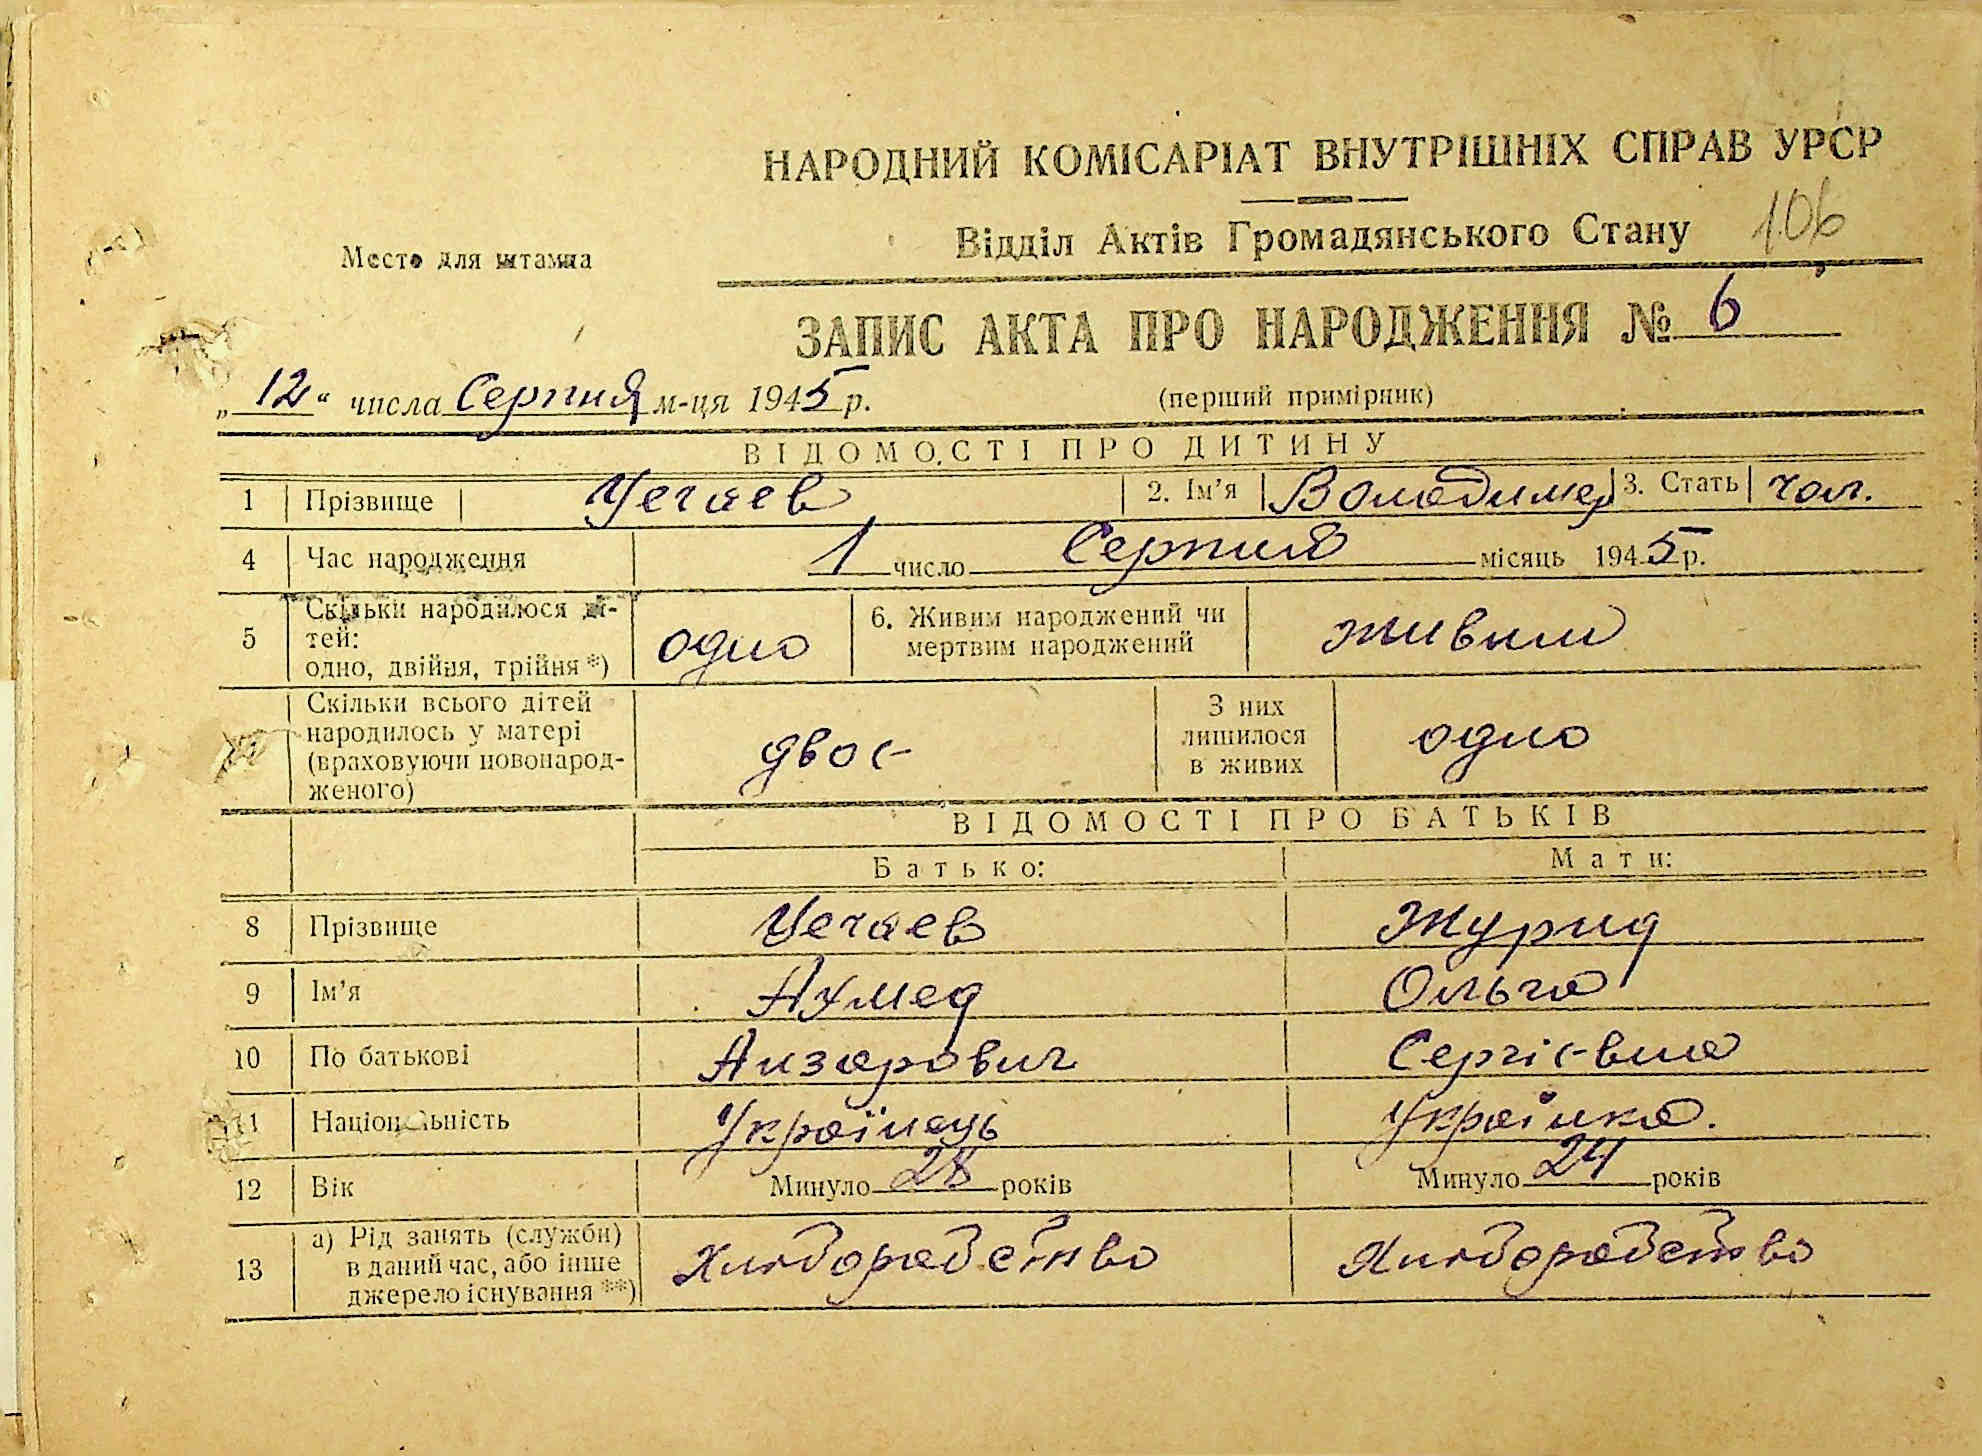 НАРОДНИЙ КОМІСАРІАТ ВНУТРІШНІХ СПРАВ УРСР
Відділ Актів Громадянського Стану 106
Место для штампа
ЗАПИС АКТА ПРО НАРОДЖЕННЯ № 6
„12“ числа Серпня м-ця 1945 р. (перший примірник)
ВІДОМОСТІ ПРО ДИТИНУ
1 Прізвище Чечаев 2. Ім’я Володимер 3. Стать чол.
4 Час народження 1 число Серпня місяць 1945 р.
5 Скільки народилося ді-
тей:
одно, двійня, трійня *) одно 6. Живим народжений чи
мертвим народжений живим
Скільки всього дітей
народилось у матері
(враховуючи новонарод-
женого) двоє З них
лишилося
в живих одно
ВІДОМОСТІ ПРО БАТЬКІВ
Батько: Мати:
8 Прізвище Чечаев Журид
9 Ім’я Ахмед Ольга
10 По батькові Анзорович Сергієвна
11 Національність Українець Українка.
12 Вік Минуло 28 років Минуло 24 років
13 а) Рід занять (служби)
в даний час, або інше
джерело існування **) Хлібороб ство Хліборобство